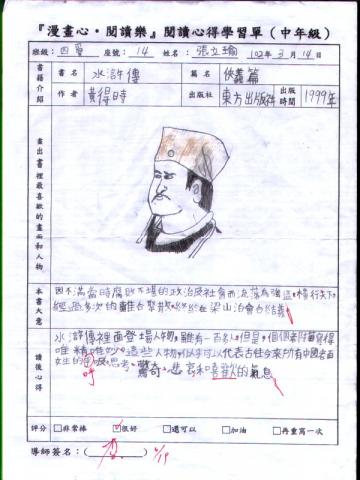 『漫畫心‧閱讀樂』閱讀心得學習單（中年級）
班級：四愛 座號：14 姓名：張 102年3月14日
書籍介紹
書名 水滸傳 篇名 俠義篇
作者 黃得時 出版社 東方出版社 出版時間 1999年
畫出書裡最喜歡的畫面和人物
本書大意
因不滿當時腐敗不堪的政治及社會而流落為強盜,橫行天下,
經過多次的離合聚散,終於在梁山泊會合結義
讀後心得
水滸傳裡面登場人物,雖有一百多人,但是,個個都描寫得
唯精唯妙,這些人物,似乎可以代表古往今來所有中國老百
姓生的呼吸思考、驚奇、悲哀和喜 的氣息
呼
評分 □非常棒 □很好 □還可以 □加油 □再重寫一次
導師簽名：( )